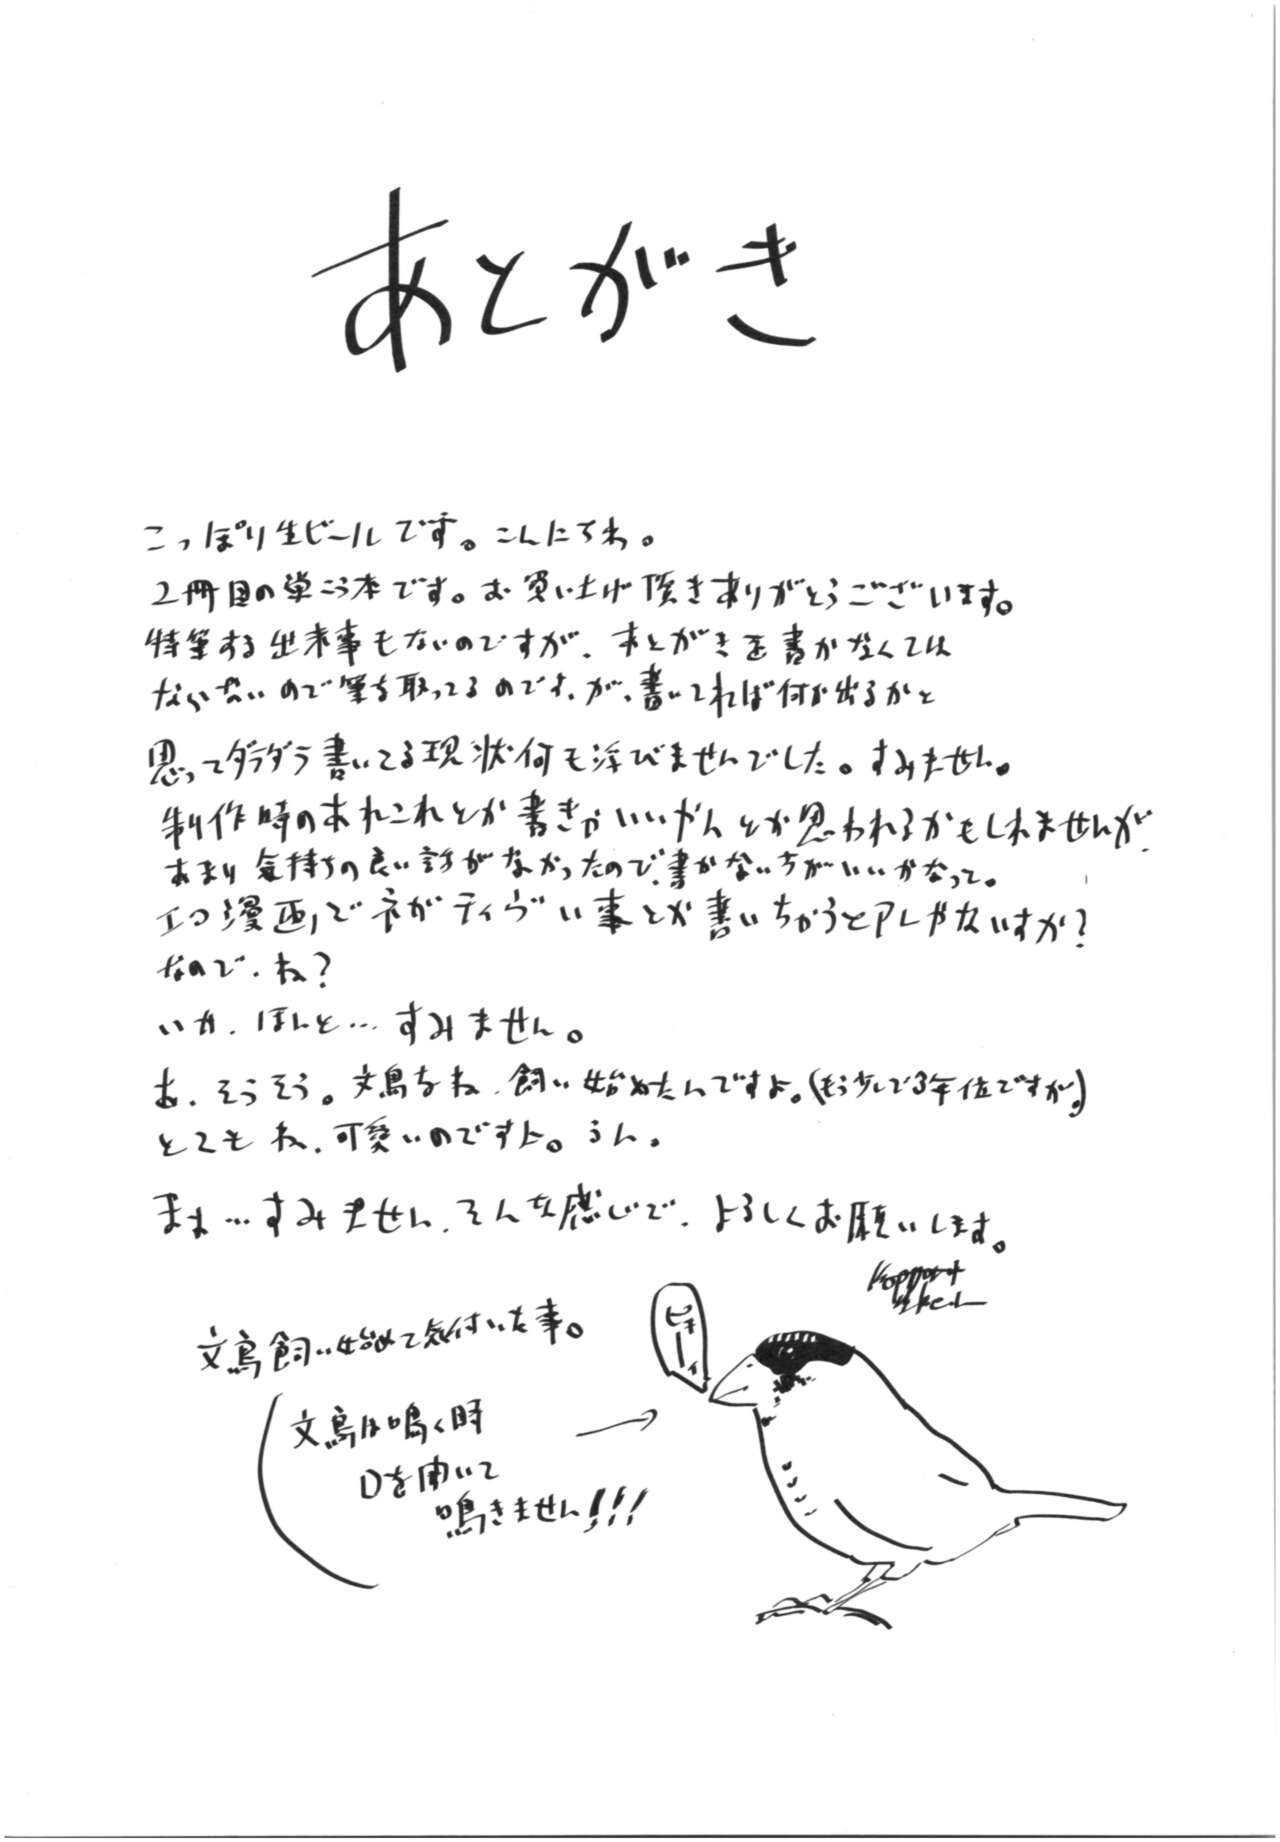 あとがき
こっぽり生ビールです。こんにちわ。
2冊目の単こう本です。お買い上げ頂きありがとうございます。
特筆する出来事もないのですが、あとがきを書かなくては
ならないので筆を取ってるのです、が、書いてれば何か出るかと
思ってダラダラ書いてる現状何も浮びませんでした。すみません。
制作時のあれこれとか書きゃいいやんとか思われるかもしれませんが、
あまり気持ちの良い話がなかったので、書かない方がいいかなって。
エロ漫画でネガティヴい事とか書いちゃうとアレやないすか?
なので、ね?
いや、ほんと…すみません。
あ、そうそう。文鳥をね、飼い始めたんですよ。(もう少しで3年位ですが。)
とてもね、可愛いのですよ。うん。
まぁ…すみません、そんな感じで、よろしくお願いします。
文鳥飼い始めて気付いた事。
ピキーィ
文鳥は鳴く時
口を開いて
鳴きません!!!